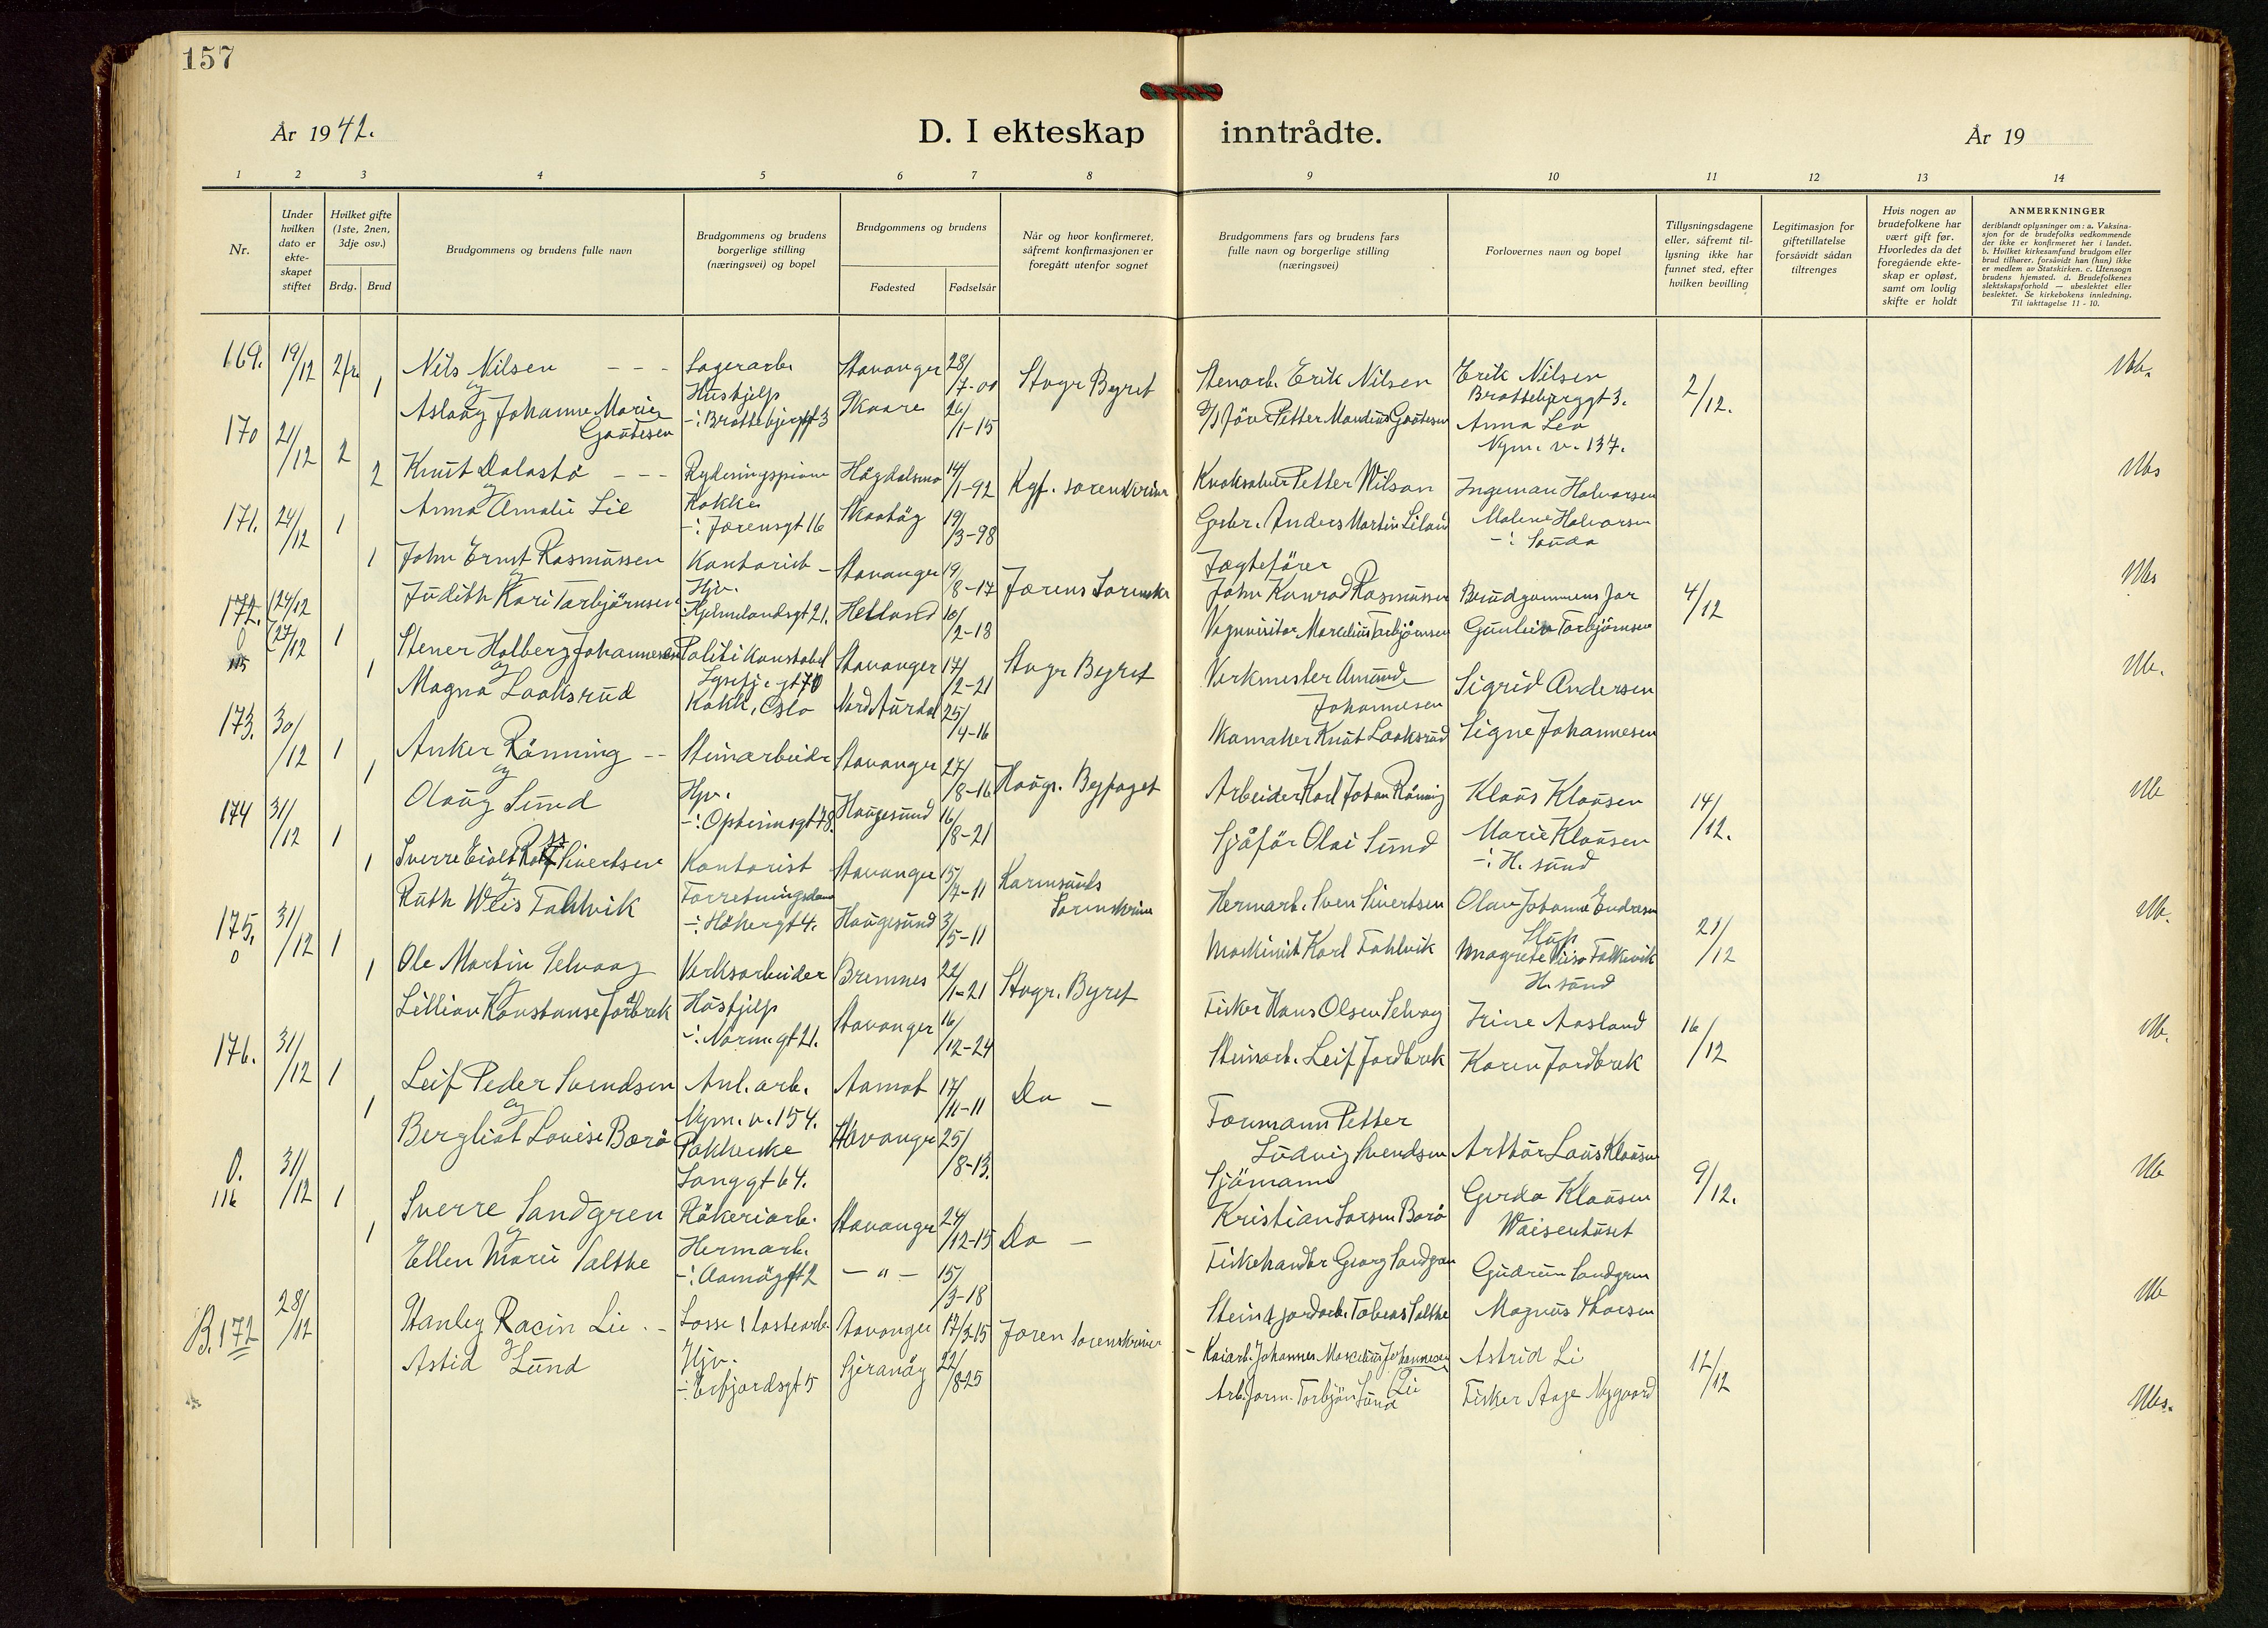 157
År 1942.
D. I ekteskap inntrådte.
År 19
1 2 3 4 5 6 7 8 9 10 11 12 13 14
Nr.
Under hvilken dato er ekte-skapet stiftet
Hvilket gifte (1ste, 2nen, 3dje osv.)
Brdg. Brud
Brudgommens og brudens fulle navn
Brudgommens og brudens borgerlige stilling (næringsvei) og bopel
Brudgommens og brudens
Fødested Fødselsår
Når og hvor konfirmeret, såfremt konfirmasjonen er foregått utenfor sognet
Brudgommens fars og brudens fars fulle navn og borgerlige stilling (næringsvei)
Forlovernes navn og bopel
Tillysningsdagene eller, såfremt til-lysning ikke har funnet sted, efter hvilken bevilling
Legitimasjon for giftetillatelse forsåvidt sådan tiltrenges
Hvis nogen av brudefolkene har vært gift før. Hvorledes da det foregående ekte-skap er opløst, samt om lovlig skifte er holdt
ANMERKNINGER
deriblandt oplysninger om: a. Vaksina-sjon for de brudefolks vedkommende der ikke er konfirmeret her i landet. b. Hvilket kirkesamfund brudgom eller brud tilhører, forsåvidt han (hun) ikke er medlem av Statskirken. c. Utensogn brudens hjemsted. d. Brudefolkenes slektskapsforhold — ubeslektet eller beslektet. Se kirkebokens innledning. Til iakttagelse 11 - 10.
169. 19/12 1 Nils Nilsen - - - Lagerarb. Stavanger 28/7-00 Stvgr Byret Stenarb. Erik Nilsen Erik Nilsen 2/12.
og Hushjelp Brattebjerggt 3.
Aslaug Johanne Marie Gautesen Skaare 26/1-15 Petter Mandius Gautesen Anna Lea
Nym. v. 137.
170 21/12 2 2 Knut Dalastø - - - 14/1-92 Kgf. sorenskriver Petter Wilson Ingeman Halvorsen
og
Anna Amalie Lie Kokke 19/3-98 Gbr. Anders Martin Malene Halvorsen
-:- Jærensgt 16 -:- Sauda
171. 24/12 1 1 John Ernst Rasmussen Kontorist - Stavanger 19/8-17 Jærens Sorenskr Jagtefører
John Konrad Rasmussen Brudgommens far 4/12
og Hjv.
Judith Kari Torbjörnsen Hjelmelandsgt 21. Helland 10/2-18 Vognvisitør Marcelius Torbjörnsen Torbjörnsen
172. 24/12 27/12 1 1 Stener Holberg Johannesen Politikonstabel Stavanger 17/2-21 Stvgr Byret Verkmester Amunde Johannesen Sigrid Andersen
0 115 og 70
Magna Laaksrud Kokk, Oslo Nord Aurdal 25/4-16 Skomaker Knut Laaksrud Signe Johannesen
173. 30/12 1 1 Anker Rönning -- Steinarbeider Stavanger 27/8-16 Haugs. Byfoget Arbeider Karl Johan Rönning Klaus Klausen 14/12.
og Hjv.
Olaug Sund -:- Opheimsgt 78. Haugesund 16/8-21 Sjåför Olai Sund Marie Klausen
-:- H. sund
174 31/12 1 1 Sverre Sivertsen Kontorist Stavanger 15/7-11 Karmsunds Sorenskriver Hermarb. Sven Sivertsen Olav Johanne Endresen 21/12
og Forretningsdame
Ruth Weis Falkvik -:- Håkergt 4. Haugesund 3/5-11 Maskinist Karl Falkvik Magrete Falkevik
H. sund
175. 0 31/12 1 1 Ole Martin Selvaag Verksarbeider Bremnes 22/1-21 Stvgr. Byret Fisker Hans Olsen Selvåg Trine Aasland 16/12
og Hushjelp
Lillian Konstanse Jordbrek -:- Normgt 21. Stavanger 16/12-24 Steinarb. Leif Jordbrek Karen Jordbrek
176. 31/12 1 1 Leif Peder Svendsen Anl. arb. Aamot 17/11-11 Do - Formann Petter Ludvig Svendsen Arthur Laus Klausen 9/12.
og Nym. v. 154.
Bergliot Louise Borø Stavanger 25/8-13. Sjömann Gerda Klausen
Langgt 64. Kristian Larsen Borø Waisenhuset
0. 116 31/12 1 1 Sverre Sandgren Røkeriarb. Stavanger 24/12-15 Do - Fiskehandler Georg Sandgren Gudrun Sandgren
og Hermarb.
Ellen Marie Saltke -:- Aamøygt 2 - " - 15/3-18 Tobias Saltke Magnus Thorsen
B. 172 28/12 Stanley Racin Lie. - Losse & lastearb. Stavanger 17/3-15 Jæren sorenskriver Kaiarb. Johannes Marcelius Johannesen Lie Astrid Li 12/12
og Hjv.
Astid Lund -:- Erfjordsgt 5 22/8-25 Arb. form. Torbjörn Lund Fisker Aage Nygaard